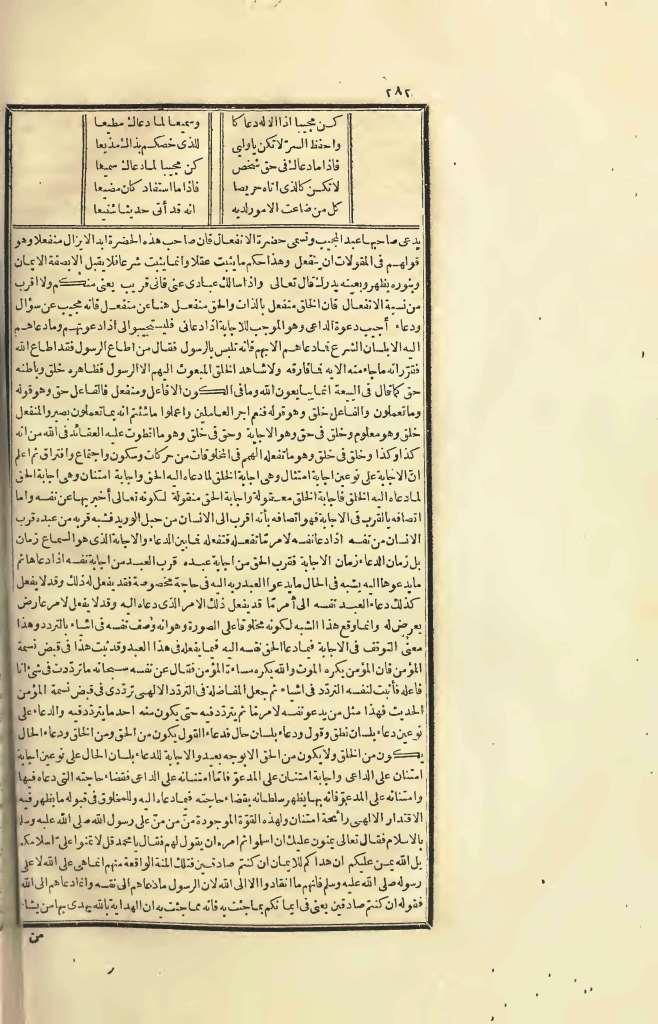 ٢٨٢
كن مجيبا اذا الاله دعاكا وسميعا لما دعاك مطيعا
واحفظ السر لا تكن يا وليي للذى خصكم بذاك مذيعا
فاذا ما دعاك فى حق شخص كن مجيبا لما دعاك سميعا
لا تكن كالذى اتاه حريصا فاذا ما استفاد كان مضيعا
كل من ضاعت الامور لديه انه قد أتى حديثا شنيعا
يدعى صاحبها عبد المجيب وتسمى حضرة الانفعال فان صاحب هذه الحضرة ابدا لا يزال منفعلا وهو
قولهم فى المقولات ان ينفعل وهذا حكم ما يثبت عقلا وانما يثبت شرعا فلا يقبل الا بصفة الايمان
وبنوره يظهر وبعينه يدرك قال تعالى واذا سالك عبادى عنى فانى قريب يعنى منكم ولا اقرب
من نسبة الانفعال فان الخلق منفعل بالذات والحق منفعل هنا عن منفعل فانه مجيب عن سؤال
ودعاء أجيب دعوة الداعى وهو الموجب للاجابة اذا دعانى فليستجيبوا لى اذا دعوتهم وما دعاهم
اليه الا بلسان الشرع فما دعاهم الا بهم فانه تلبس بالرسول فقال من اطاع الرسول فقد اطاع الله
فقرر انه ما جاء منه الا به فما فارقه ولا شاهد الخلق المبعوث اليهم الا الرسول فظاهره خلق وباطنه
حق كما قال فى البيعة انما يبايعون الله وما فى الكون الا فاعل ومنفعل فالفاعل حق وهو قوله
وما تعملون والفاعل خلق وهو قوله فنعم اجر العاملين واعملوا ما شئتم انه بما تعملون بصير والمنفعل
خلق وهو معلوم وخلق فى حق وهو الاجابة وحق فى خلق وهو ما انطوت عليه العقائد فى الله من انه
كذا وكذا وخلق فى خلق وهو ما تفعله الهمم فى المخلوقات من حركات وسكون واجتماع وافتراق ثم اعلم
انّ الاجابة على نوعين اجابة امتثال وهى اجابة الخلق لما دعاه اليه الحق واجابة امتنان وهى اجابة الحق
لما دعاه اليه الخلق فاجابة الخلق معقولة واجابة الحق منقولة لكونه تعالى أخبر بها عن نفسه واما
اتصافه بالقرب فى الاجابة فهو اتصافه بأنه اقرب الى الانسان من حبل الوريد فشبه قربه من عبده قرب
الانسان من نفسه اذا دعا نفسه لامر ما تفعله فتفعله فما بين الدعاء والاجابة الذى هو السماع زمان
بل زمان الدعاء زمان الاجابة فقرب الحق من اجابة عبده قرب العبد من اجابة نفسه اذا دعاها ثم
ما يدعوها اليه يشبه فى الحال ما يدعو العبد ربه اليه فى حاجة مخصوصة فقد يفعل له ذلك وقد لا يفعل
كذلك دعاء العبد نفسه الى أمر مّا قد يفعل ذلك الامر الذى دعاه اليه وقد لا يفعل لامر عارض
يعرض له وانما وقع هذا الشبه لكونه مخلوقا على الصورة وهو انه وصف نفسه فى اشياء بالتردد وهذا
معنى التوقف فى الاجابة فيما دعا الحق نفسه اليه فيما يفعله فى هذا العبد وقد ثبت هذا فى قبض نسمة
المؤمن فان المؤمن يكره الموت والله يكره مساءة المؤمن فقال عن نفسه سبحانه ما ترددت فى شئ انا
فاعله فأثبت لنفسه التردد فى اشياء ثم جعل المفاضلة فى التردد الالهى ترددى فى قبض نسمة المؤمن
الحديث فهذا مثل من يدعو نفسه لامر ما ثم يتردد فيه حتى يكون منه احد ما يتردد فيه والدعاء على
نوعين دعاء بلسان نطق وقول ودعاء بلسان حال فدعاء القول يكون من الحق ومن الخلق ودعاء الحال
يكون من الخلق ولا يكون من الحق الا بوجه بعيد والاجابة للدعاء بلسان الحال على نوعين اجابة
امتنان على الداعى واجابة امتنان على المدعوّ فاما امتنانه على الداعى فقضاء حاجته التى دعاه فيها
وامتنانه على المدعوّ فانه بها يظهر سلطانه بقضاء حاجته فيما دعاه اليه وللمخلوق فى قبوله ما يظهر فيه
الاقتدار الالهى رائحة امتنان ولهذه القوّة الموجودة منّ من منّ على رسول الله صلى الله عليه وسلم
بالاسلام فقال تعالى يمنون عليك ان اسلموا ثم امره ان يقول لهم فقال يا محمد قل لا تمنوا علىّ اسلامكم
بل الله يمن عليكم ان هداكم للايمان ان كنتم صادقين فتلك المنة الواقعة منهم انما هى على الله لا على
رسوله صلى الله عليه وسلم فانهم ما انقادوا الا الى الله لان الرسول ما دعاهم الى نفسه وانما دعاهم الى الله
فقوله ان كنتم صادقين يعنى فى ايمانكم بما جئت به فانه مما جئت به ان الهداية بالله يهدى بها من يشاء
من